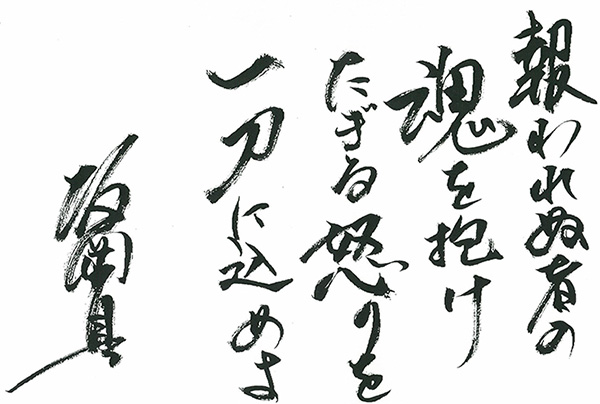 報われぬ者の
魂を抱け
たぎる怒りを
一刀に込めよ
坂岡真